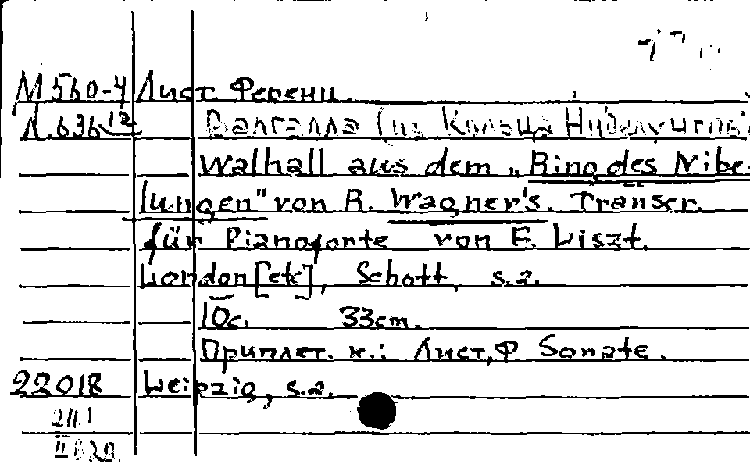 М 560-4 Лист Ференц.
Л.636 12 Валгалла (из Кольца Нибелунгов)
Walhall aus dem „Ring des Nibe-
lungen" von R. Wagner's. Transcr.
für Pianoforte von F. Liszt.
London [etc], Schott, s.a.
10c. 33cm.
Приплет. к.: Лист, Ф Sonate.
22018 Leipzig, s.a.